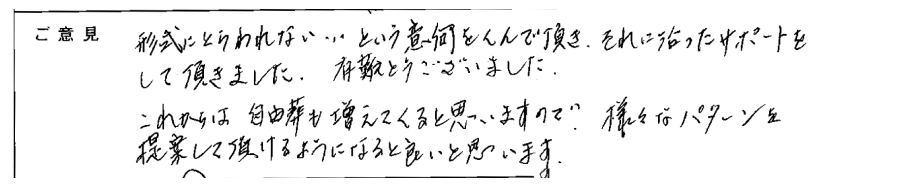 ご意見
形式にとらわれない... という意向をくんで頂き、それに沿ったサポートを
して頂きました. 有難とうございました.
これからは 自由葬も増えてくると思いますので 様々なパターンを
提案して頂けるようになると良いと思います.